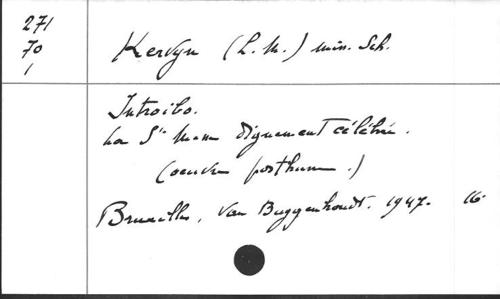 271
70
1
Kervyn (L. M.) miss. Sch.
Introibo.
La Ste Messe dignement célébrée.
(oeuvre posthume.)
Bruxelles, Van Buggenhoudt. 1947. 16°